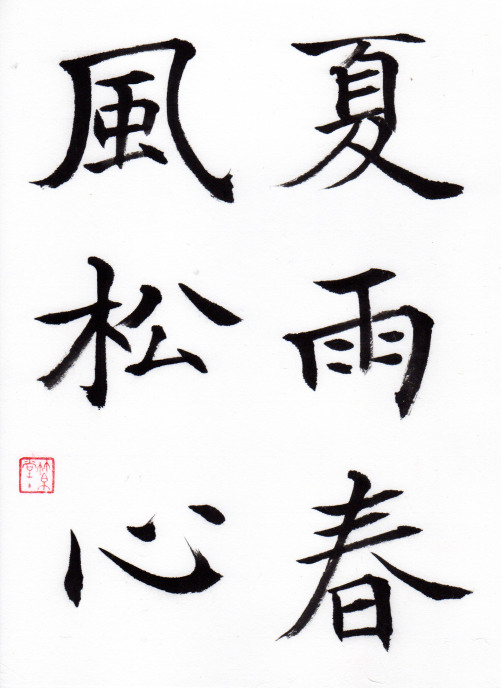 夏雨春
風松心